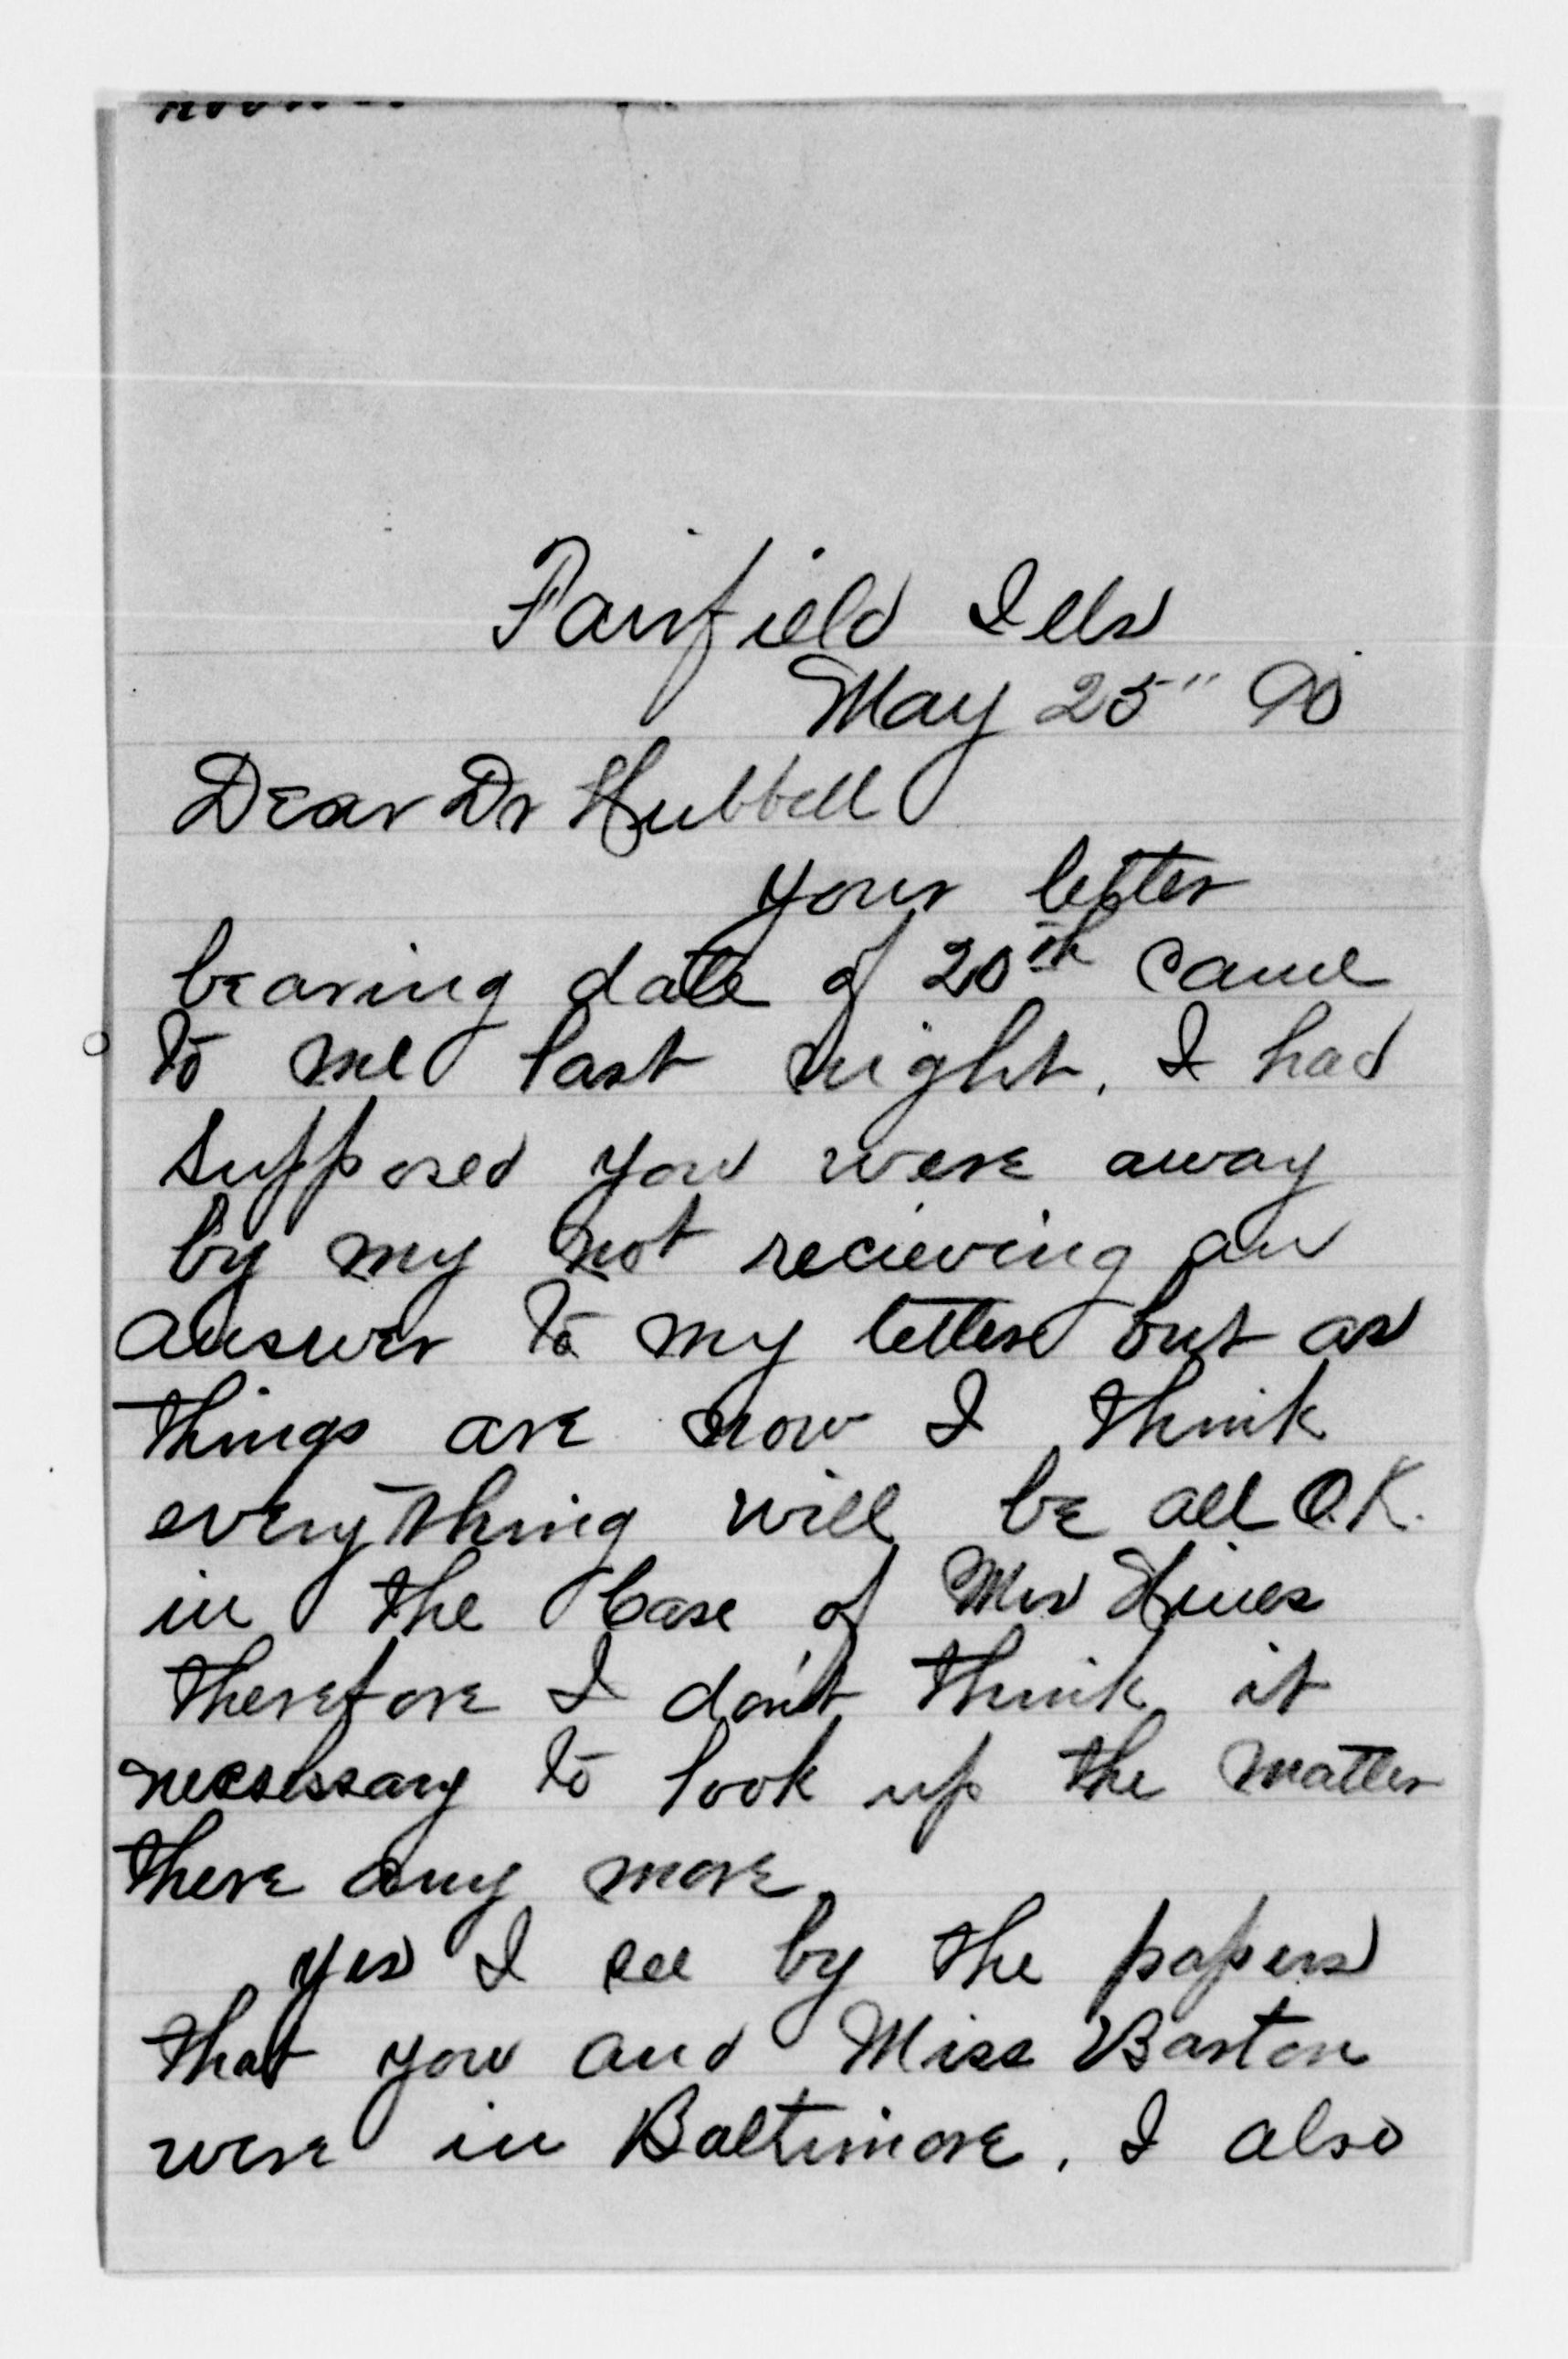 Fairfield Ills
May 25" 90
Dear Dr Hubbell
your letter
bearing date of 20th came
to me last night. I had
supposed you were away
by my not recieving an
answer to my letters but as
things are now I think
everything will be all O.K.
in the case of Mrs Hines
therefore I don't think it
necessary to look up the matter
there any more.
yes I see by the papers
that you and Miss Barton
were in Baltimore. I also